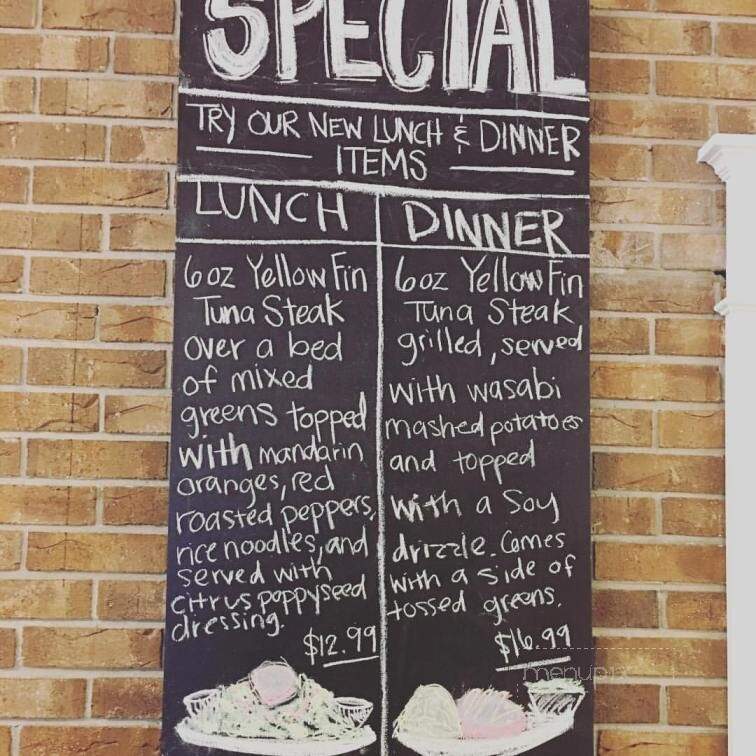 SPECIAL
TRY OUR NEW LUNCH & DINNER
ITEMS
LUNCH
6oz Yellow Fin
Tuna Steak
over a bed
of mixed
greens topped
with mandarin
oranges, red
roasted peppers,
rice noodles, and
served with
citrus poppyseed
dressing.
$12.99
DINNER
6oz Yellow Fin
Tuna Steak
grilled, served
with wasabi
mashed potatoes
and topped
with a Soy
drizzle. Comes
with a side of
tossed greens.
$16.99